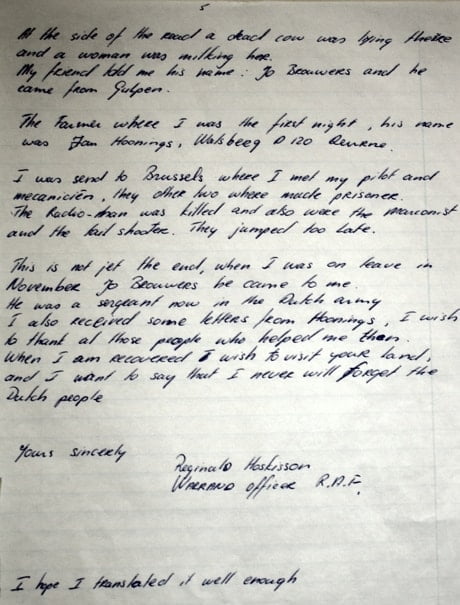 5
At the side of the road a dead cow was lying theere
and a woman was milking her.
My friend told me his name: Jo Brouwers and he
came from Gulpen.
The Farmer where I was the first night, his name
was Jan Hoonings, Walsberg D 120 Deurne.
I was send to Brussels where I met my pilot and
mecaniciën, they other two where made prisoner.
The Radio-man was killed and also were the marconist
and the tail shooter. They jumped too late.
This is not jet the end, when I was on leave in
November Jo Brouwers he came to me.
He was a sergeant now in the Dutch army
I also received some letters from Hoonings, I wish
to thank al those people who helped me then.
When I am recovered I wish to visit your land,
and I want to say that I never will forget the
Dutch people
Yours sincerly
Reginald Hoskisson
Warrand officer R.A.F.
I hope I translated it well enough